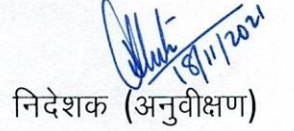 18/11/2021
निदेशक (अनुवीक्षण)